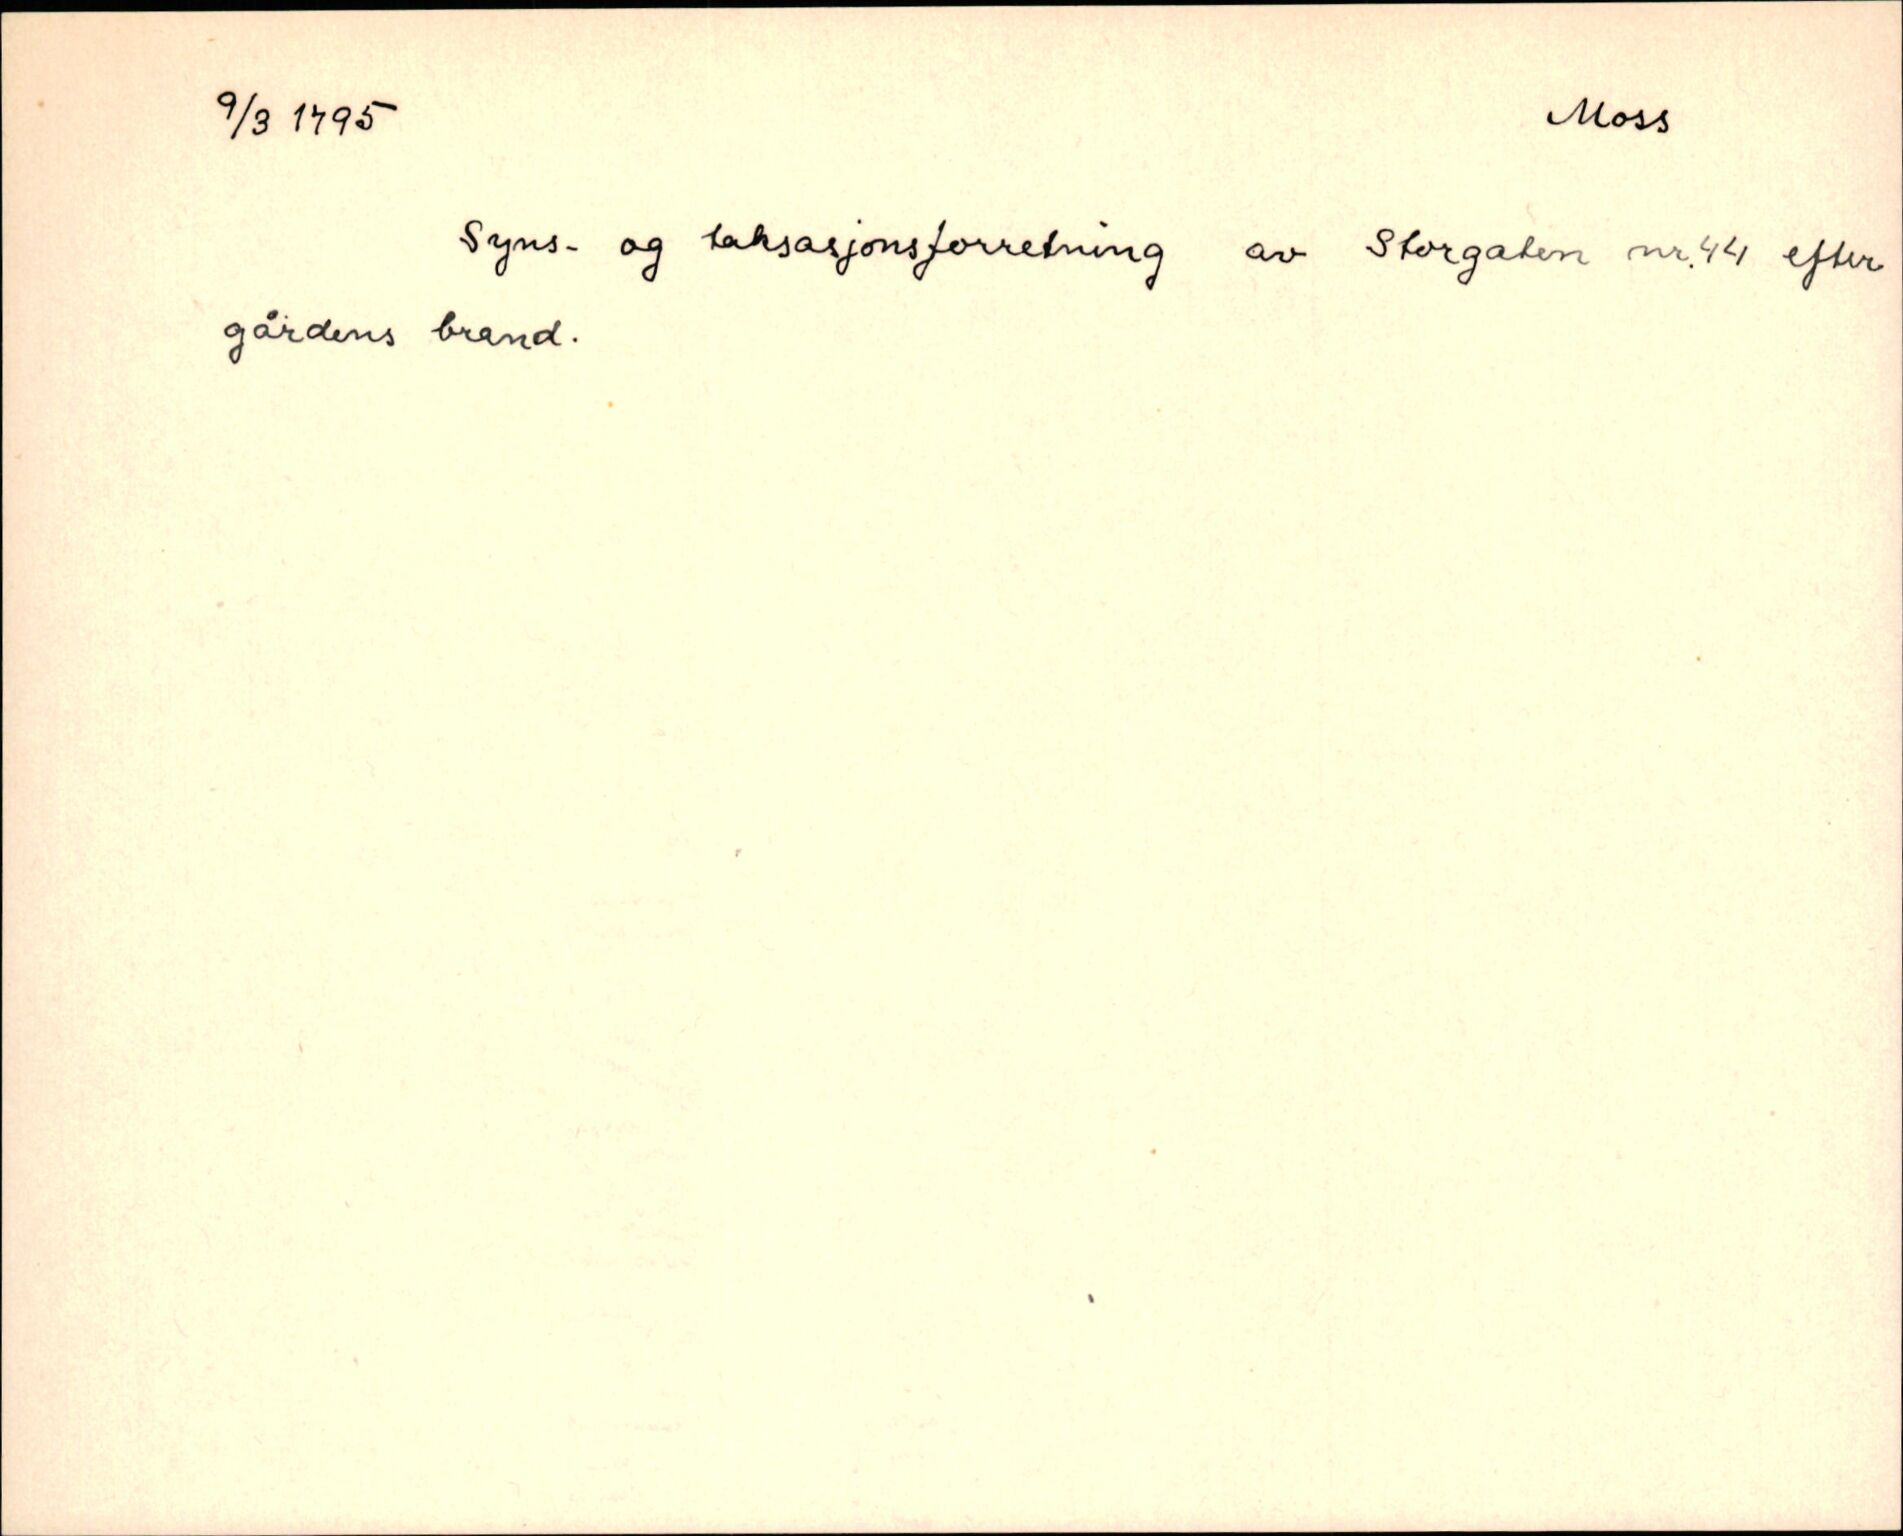 9/3 1795 Moss
Syns- og taksasjonsforretning av Storgaten nr. 44 efter
gårdens brand.